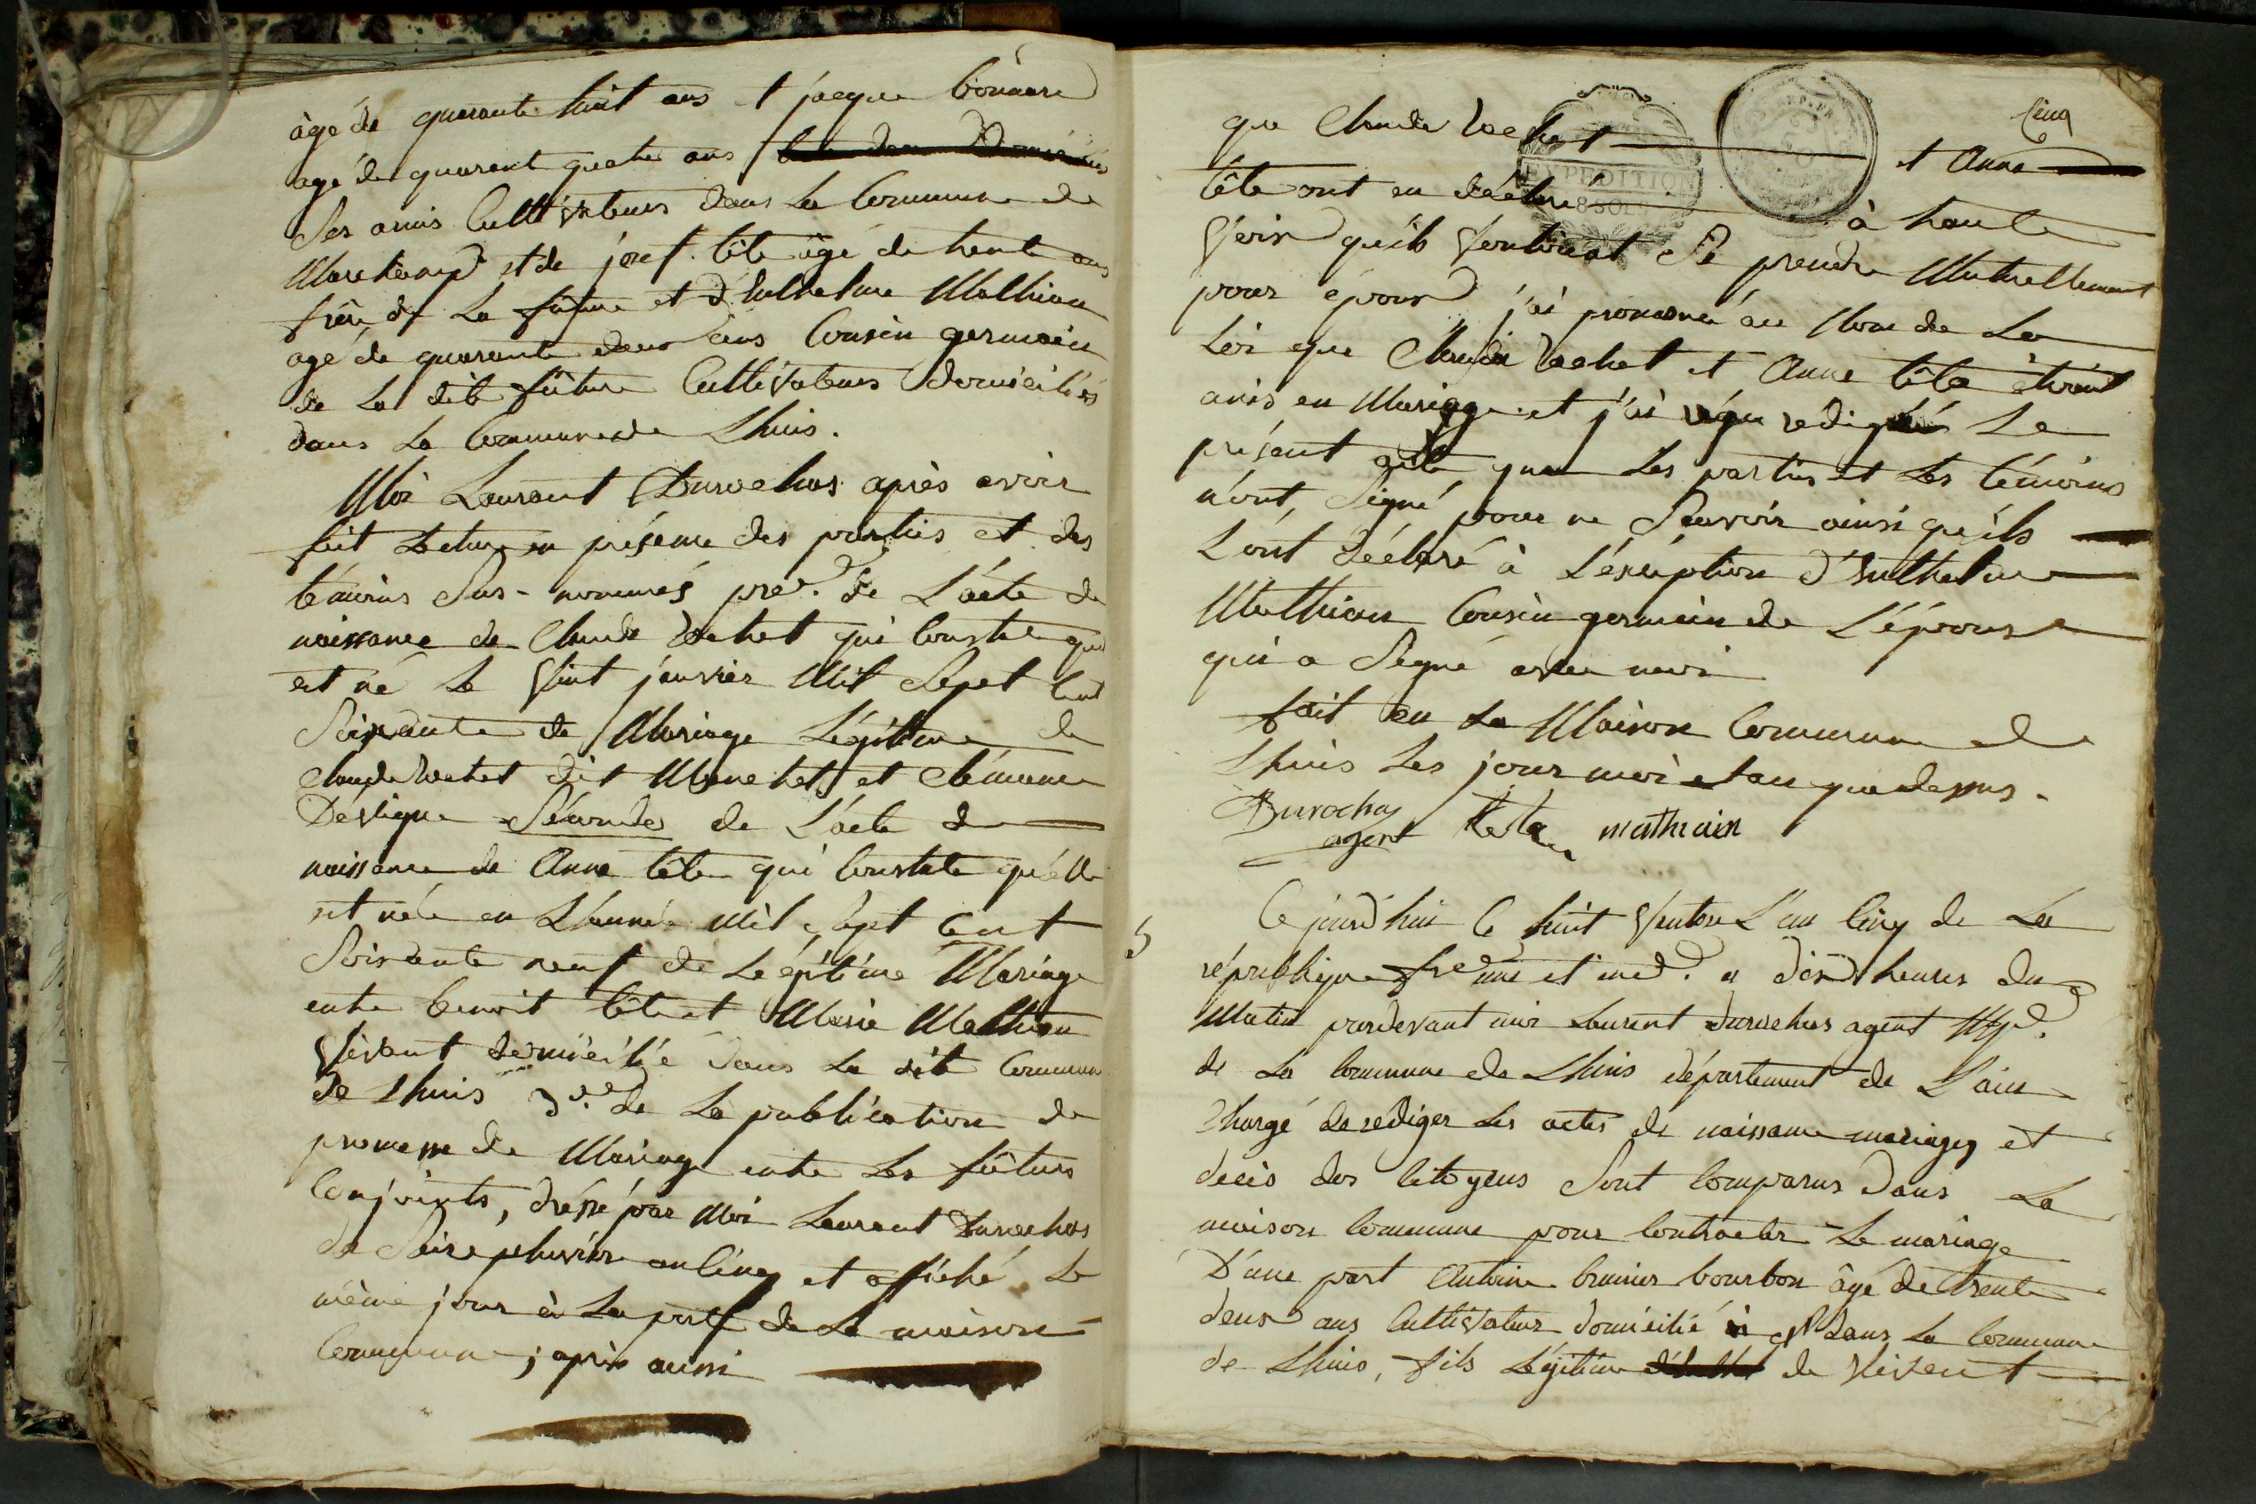 âgé de quarante huit ans et jacque bonnare
agé de quarent quatre ans
Ses amis Cultivateurs dans la Commune de
Marchamp et de josef tête âgé de trente ans
frère de La future et d'Anthelme Mathieu
agé de quarante deux ans Cousin germain
de La dite future Cultivateurs domiciliés
dans La Commune de Lhuis.
Moi Laurent Durochas après avoir
fait Lecture en présence des parties et des
témoins Sus-nommés pre. de L'acte de
naissance de Claude Vachet qui Constate que
est né Le Vint janvier Mil Sept Cent
Soixante de Mariage Légitime de
Claude Vachet dit Manchet et Clémence
Déviigne Séconde de L'acte de
naissance de Anne tête qui Constate qu'elle
est née en L'année Mil Sept Cent
Soixante neuf de Légitime Mariage
entre benoit tête et Marie Mathieu
Vivant domicilié dans La dite Commune
de Lhuis 3.e de La publication de
promesse de Mariage entre Les futurs
Conjoints, dréssé par Moi Laurent Durochas
de Seize pluviôse an Cinq et affiché Le
même jour à La porte de La maison
Commune; après aussi
Cinq
que Claude Vachet et Anne
tête ont eu déclaré à haute
Voix qu'ils Vouloient Se prendre Mutuellement
EXPEDITION
8 SOLS
pour époux j'ai prononcé au Nom de La
Loi que Claude Vachet et Anne tête étoient
unis en Mariage et j'ai rédigé Le
présent acte que Les parties et Les témoins
n'ont Signé pour ne Savoir ainsi qu'ils
L'ont déclaré à L'éxception d'Anthelme
Mathieu Cousin germain de L'épouse
qui a Signé avec moi
fait en La Maison Commune de
Lhuis Les jour moi et an que dessus.
Durochas
agent teta mathiein
5
Ce jourd'hui Ce huit Ventose L'an Cinq de La
république fre une et ind. a dix heures du
Matin pardevant moi Laurent durochas agent Mpl.
de La Commune de Lhuis département de L'ain
Chargé de rédiger Les actes de naissance mariages et
decès des Citoyens Sont Comparus dans La
maison Commune pour Contracter Le mariage
D'une part Antoine brunier bourbon âgé de trente
deux ans Cultivateur domicilié dans La Commune
de Lhuis, fils Légitime de Vivent